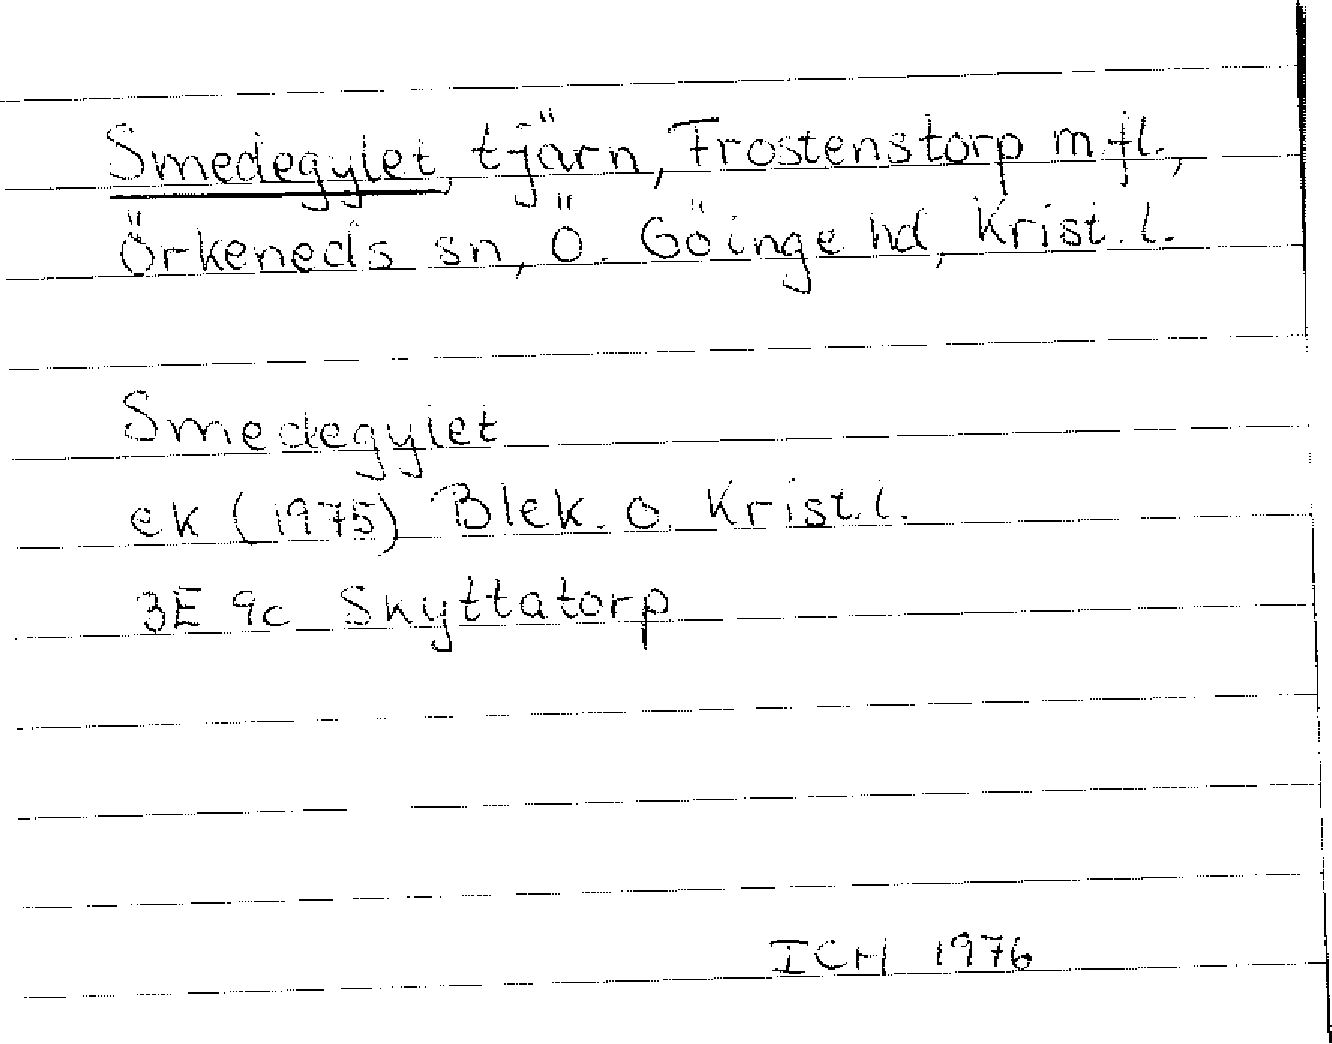 Smedegylet, tjärn, Frostenstorp m fl.,
Örkeneds sn, Ö. Göinge hd, Krist. l.
Smedegylet
ek (1975) Blek. o. Krist. l.
3E 9c Skyttatorp
ICH 1976